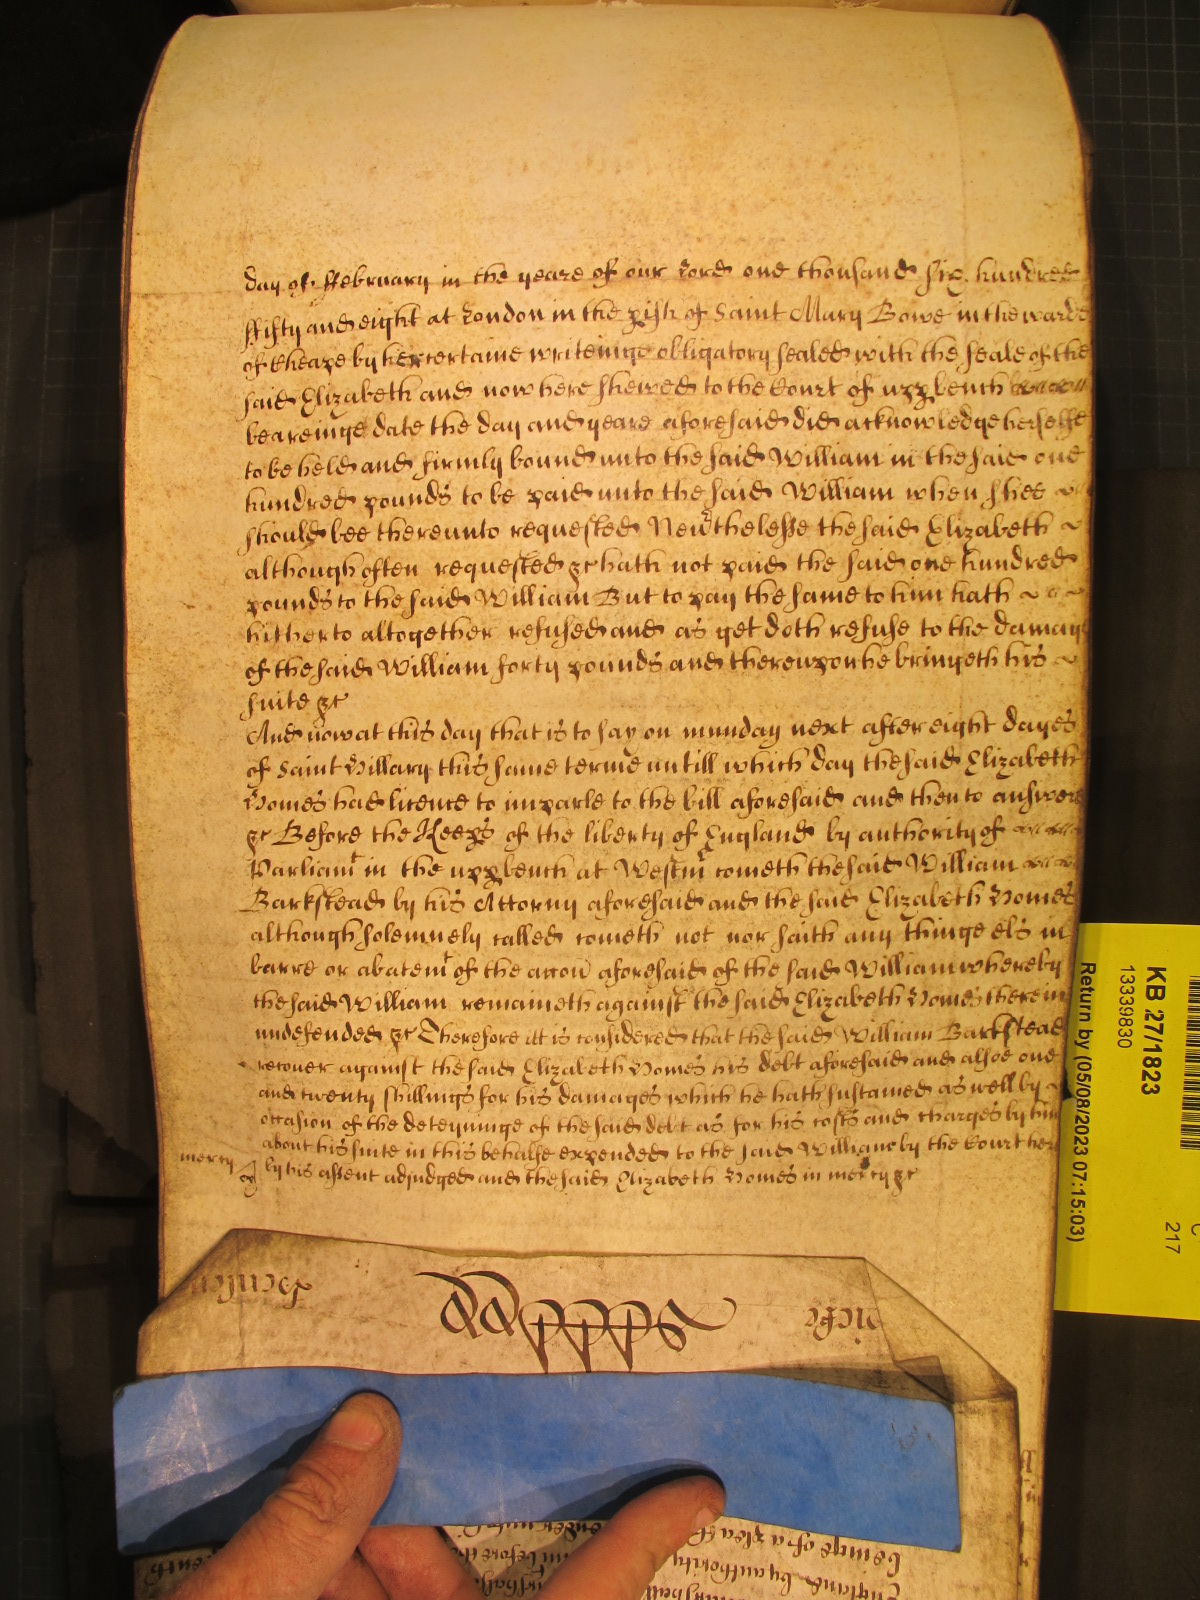 day of ffebruary in the yeare of our Lord one thousand six hundred
ffifty and eight at London in the pish of Saint Mary Bowe in the warde
of Cheape by her certaine writeinge obligatory sealed with the seale of the
said Elizabeth and now here shewed to the Court of upp bench
beareinge date the day and yeare aforesaid did acknowledge herselfe
to be held and firmly bound unto the said William in the said one
hundred pounds to be paid unto the said William when shee
should bee thereunto requested Nevthelesse the said Elizabeth
although often requested &c hath not paid the said one hundred
pounds to the said William But to pay the same to him hath
hitherto altogether refused and as yet doth refuse to the damage
of the said William forty pounds and thereupon he bringeth his
suite &c
And now at this day that is to say on munday next after eight dayes
of Saint Hillary this same terme untill which day the said Elizabeth
Homes had licence to imparle to the bill aforesaid and then to answere
&c Before the Keeps of the liberty of England by authority of
Parliamt in the upp bench at Westmr cometh the said William
Barkstead by his Attorny aforesaid and the said Elizabeth Homes
although solemnely called cometh not nor saith any thinge els in
barre or abatemt of the accon aforesaid of the said William whereby
the said William remaineth against the said Elizabeth Homes therein
undefended &c Therefore itt is considered that the said William Barkstead
recover against the said Elizabeth Homes his debt aforesaid and alsoe one
and twenty shillings for his damages which he hath sustained as well by
occasion of the deteyninge of the said debt as for his costs and charges by him
about his suite in this behalfe expended to the said William by the Court here
mercy
by his assent adjudged and the said Elizabeth Homes in mercy &c
KB 27/1823
13339830
Return by (05/08/2023 07:15:03)
217